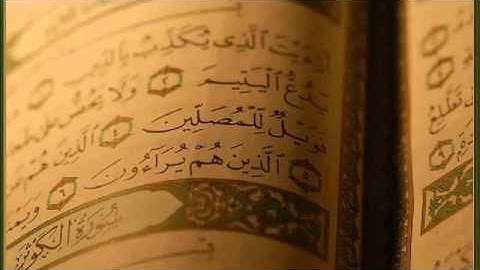 تَطَّلِعُ
٩
ٱلَّذِى يُكَذِّبُ بِٱلدِّينِ
يَدُعُّ ٱلْيَتِيمَ ٢ وَلَا يَحُضُّ عَلَىٰ
فَوَيْلٌ لِّلْمُصَلِّينَ ٤ ٱلَّذِينَ هُمْ
٥ ٱلَّذِينَ هُمْ يُرَآءُونَ ٦
سُورَةُ الكَوْثَر